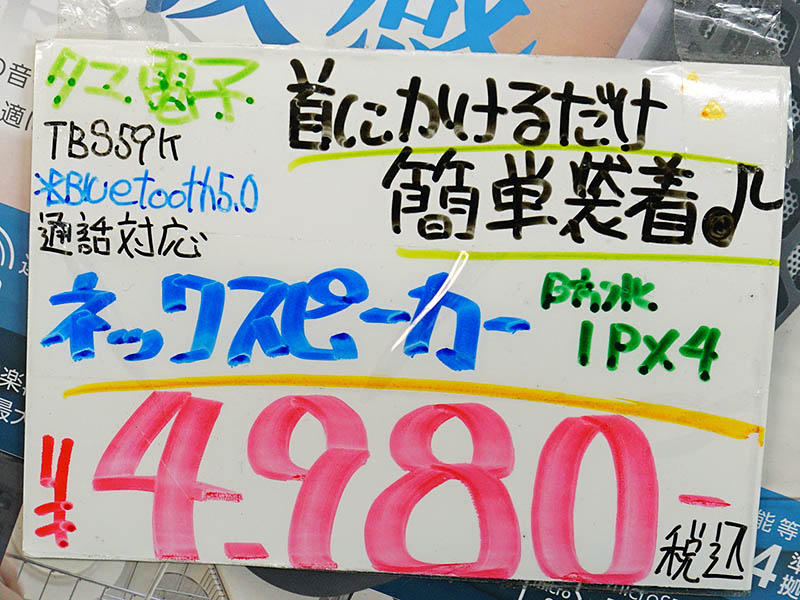 タマ電子
TBS59K
※Bluetooth5.0
通話対応
首にかけるだけ
簡単装着♪
ネックスピーカー
防水
IPX4
¥4.980-
税込